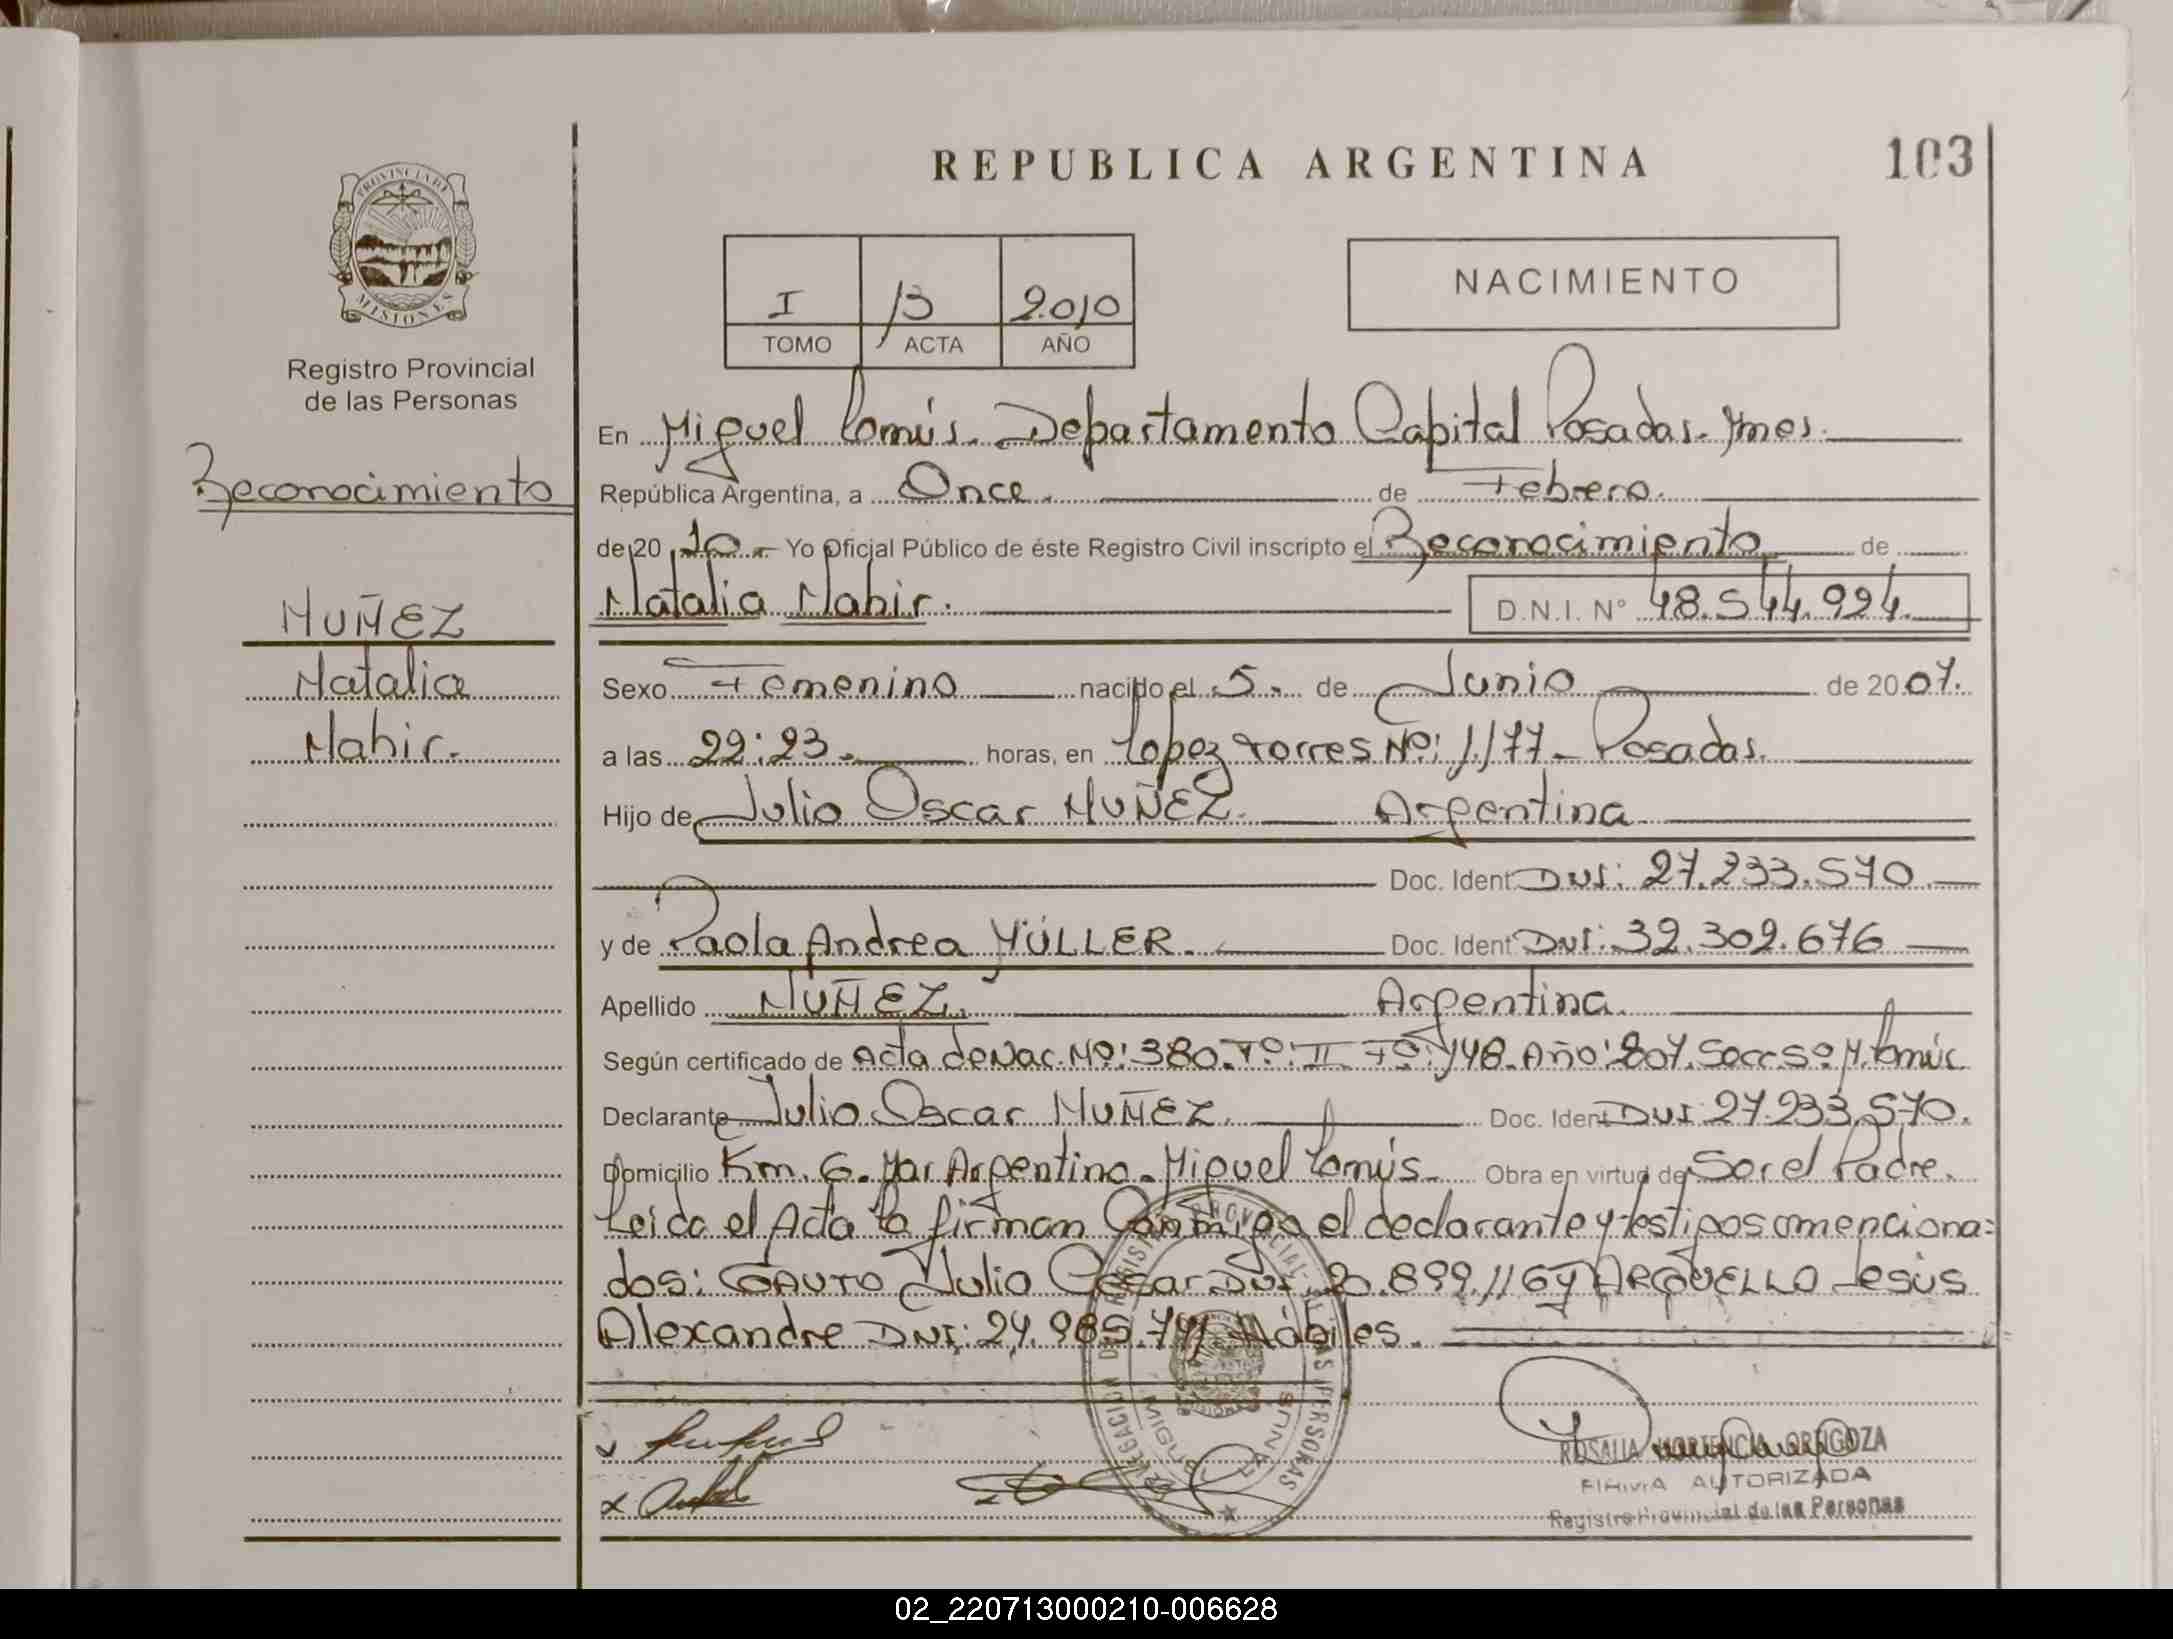 REPUBLICA ARGENTINA
103
PROVINCIA DE
MISIONES
Registro Provincial
de las Personas
I 13 2.010
TOMO ACTA AÑO
NACIMIENTO
Reconocimiento
MUÑEZ
Natalia
Nahir.
En Miguel Lanús. Departamento Capital Posadas. Mnes.
República Argentina, a Once. de Febrero.
de 20 10.- Yo Oficial Público de éste Registro Civil inscripto el Reconocimiento de
Natalia Nahir. D.N.I. N° 48.544.924.
Sexo Femenino nacido el 5. de Junio de 20 07.
a las 22:23. horas, en Lopez Torres Nº: 1.177 - Posadas.
Hijo de Julio Oscar MUÑEZ. Argentina
Doc. Ident DNI: 27.233.570
y de Paola Andrea MÜLLER. Doc. Ident DNI: 32.302.676
Apellido MUÑEZ. Argentina.
Según certificado de Acta de Nac. Nº: 380. Tº: II Fº: 148. Año: 2007. Secc 5º M. Lanús
Declarante Julio Oscar MUÑEZ. Doc. Ident DNI 27.233.570.
Domicilio Km. 6. Mar Argentino. Miguel Lanús. Obra en virtud de Ser el Padre.
Leida el Acta la firman Conmigo el declarante y testigos menciona=
dos: GAUTO Julio Cesar DNI: 20.899.116 y ARGUELLO Jesús
Alexandre DNI: 24.985.741 Hábiles.
ROSALIA HORTENCIA ORTIGOZA
FIRMA AUTORIZADA
Registro Provincial de las Personas
02_220713000210-006628